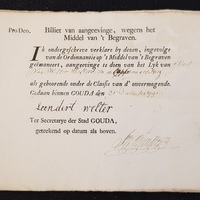 Pro Deo.
Billiet van aangeevinge, wegens het
Middel van 't Begraven.
Ik ondergeschreve verklare by dezen, ingevolge
van de Ordonnantie op 't Middel van 't Begraven
geëmaneert, aangeevinge te doen van het Lyk van
als gehoorende onder de Classe van d' onvermogende.
Gedaan binnen GOUDA den
Leendert Wolter
Ter Secretarye der Stad GOUDA,
geteekend op datum als boven.